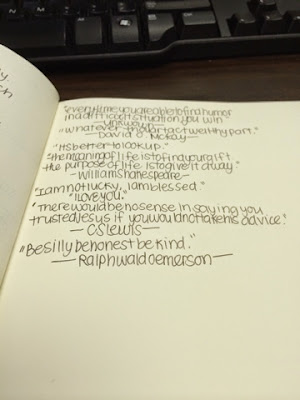 "everytime you are able to find humor
in a difficult situation, you win."
—unknown—
"whatever thou art act well thy part."
—David O. McKay—
"It's better to look up."
"the meaning of life is to find your gift
the purpose of life is to give it away."
—william shakespeare—
"I am not lucky, I am blessed."
"I LOVE YOU."
"There would be no sense in saying you
trusted Jesus if you would not take his advice."
—CS lewis—
"Be silly be honest be kind."
—Ralph waldo emerson—